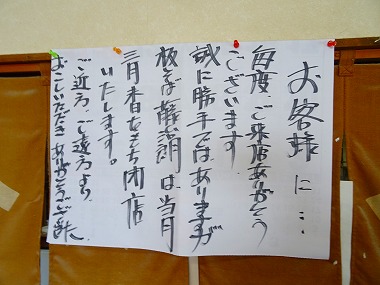 お客様に…
毎度、ご来店ありがとう
ございます。
誠に勝手ではありますが
板そば 藤治朗 は当月
三月末日をもち閉店
いたします。
ご近方、ご遠方より
おこしいただきありがとうございました。